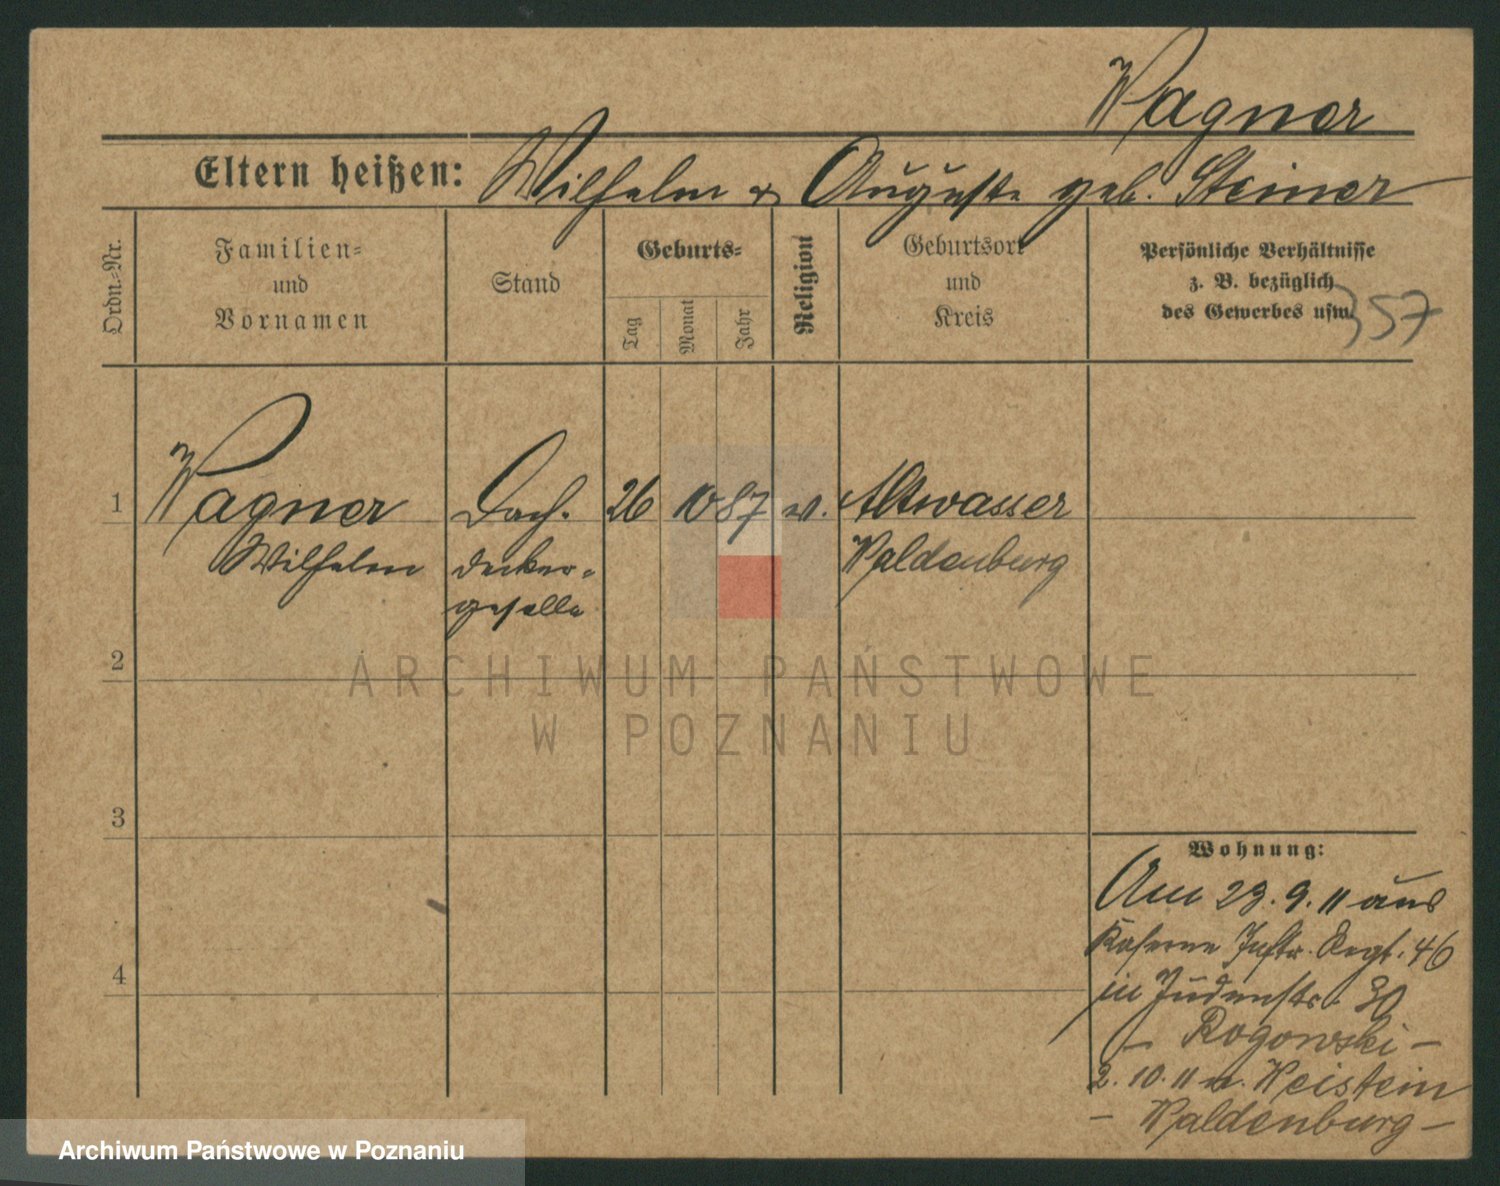 Wagner
Eltern heißen: Wilhelm & Auguste geb. Steiner
Ordn.-Nr.
Familien- und Vornamen
Stand
Geburts-
Tag
Monat
Jahr
Religion
Geburtsort und Kreis
Persönliche Verhältnisse
z. B. bezüglich
des Gewerbes usw.
357
1 Wagner Dach- 26 10 87 ev. Altwasser
Wilhelm decker- Waldenburg
geselle
2
3
4
Wohnung:
Am 23.9.11 aus
Kaserne Inftr. Regt. 46
in Judenstr. 30
- Rogowski -
2.10.11 n. Weistein
- Waldenburg -
ARCHIWUM PAŃSTWOWE
W POZNANIU
Archiwum Państwowe w Poznaniu